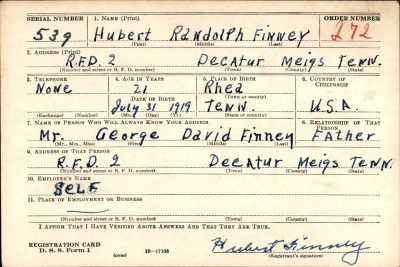 SERIAL NUMBER 1. NAME (Print) ORDER NUMBER
539 Hubert Randolph Finney 272
(First) (Middle) (Last)
2. ADDRESS (Print)
R.F.D. 2 Decatur Meigs Tenn.
(Number and street or R. F. D. number) (Town) (County) (State)
3. TELEPHONE 4. AGE IN YEARS 5. PLACE OF BIRTH 6. COUNTRY OF CITIZENSHIP
None 21 Rhea
DATE OF BIRTH (Town or county)
July 31 1919 Tenn. U.S.A.
(Exchange) (Number) (Mo.) (Day) (Yr.) (State or country)
7. NAME OF PERSON WHO WILL ALWAYS KNOW YOUR ADDRESS 8. RELATIONSHIP OF THAT PERSON
Mr. George David Finney Father
(Mr., Mrs., Miss) (First) (Middle) (Last)
9. ADDRESS OF THAT PERSON
R.F.D. 2 Decatur Meigs Tenn.
(Number and street or R. F. D. number) (Town) (County) (State)
10. EMPLOYER'S NAME
SELF
11. PLACE OF EMPLOYMENT OR BUSINESS
(Number and street or R. F. D. number) (Town) (County) (State)
I AFFIRM THAT I HAVE VERIFIED ABOVE ANSWERS AND THAT THEY ARE TRUE.
REGISTRATION CARD
D. S. S. Form 1 (over) 16—17105 Hubert Finney
(Registrant's signature)